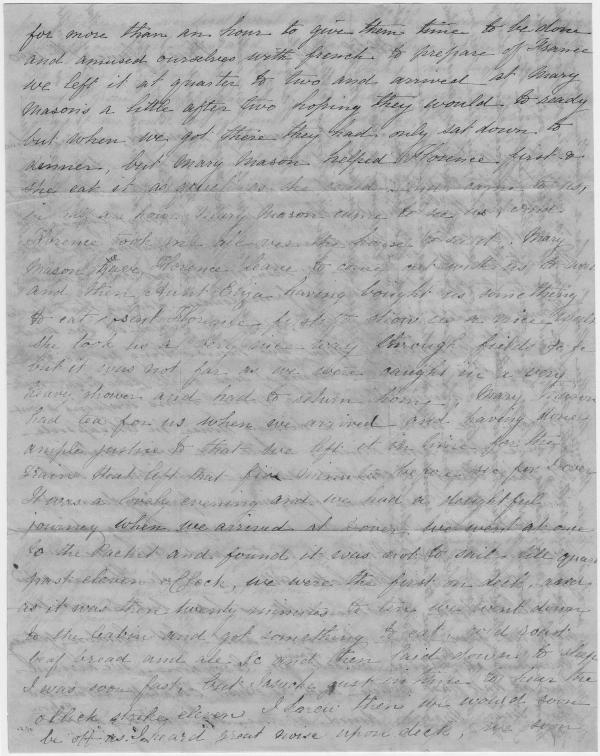 for more than an hour to give them time to be done
and amused ourselves with french to prepare of France
we left it at quarter to two and arrived at Mary
Mason's a little after two hoping they would be ready
but when we got there they had only sat down to
dinner, but Mary Mason helped Florence first &
she eat it as quick as she could and came to us,
in an hour Mary Mason came to see us, and
Florence took me all over the house to see it. Mary
Mason gave Florence leave to come out with us to
and then Aunt Eliza having bought us something
to eat sent Florence first to show us a nice walk
she took us a very nice way through fields &c &c
but it was not far as we were caught in a very
heavy shower and had to return home, Mary Mason
had tea for us when we arrived and having done
ample justice to that we left it in time for the
train that left that five minutes before six for Dover
It was a lovely evening and we had a delightful
journey when we arrived at Dover, we went at once
to the Packet and found it was not to sail till quarter
past eleven o'clock, we were the first on deck,
as it was then twenty minutes to we went down
to the Cabin and got something to eat, cold roast
beef bread and ale &c and then laid down to sleep
I was soon fast, but awoke just in time to hear the
o'clock strike eleven I knew then we would soon
be off as I heard great noise upon deck, we soon